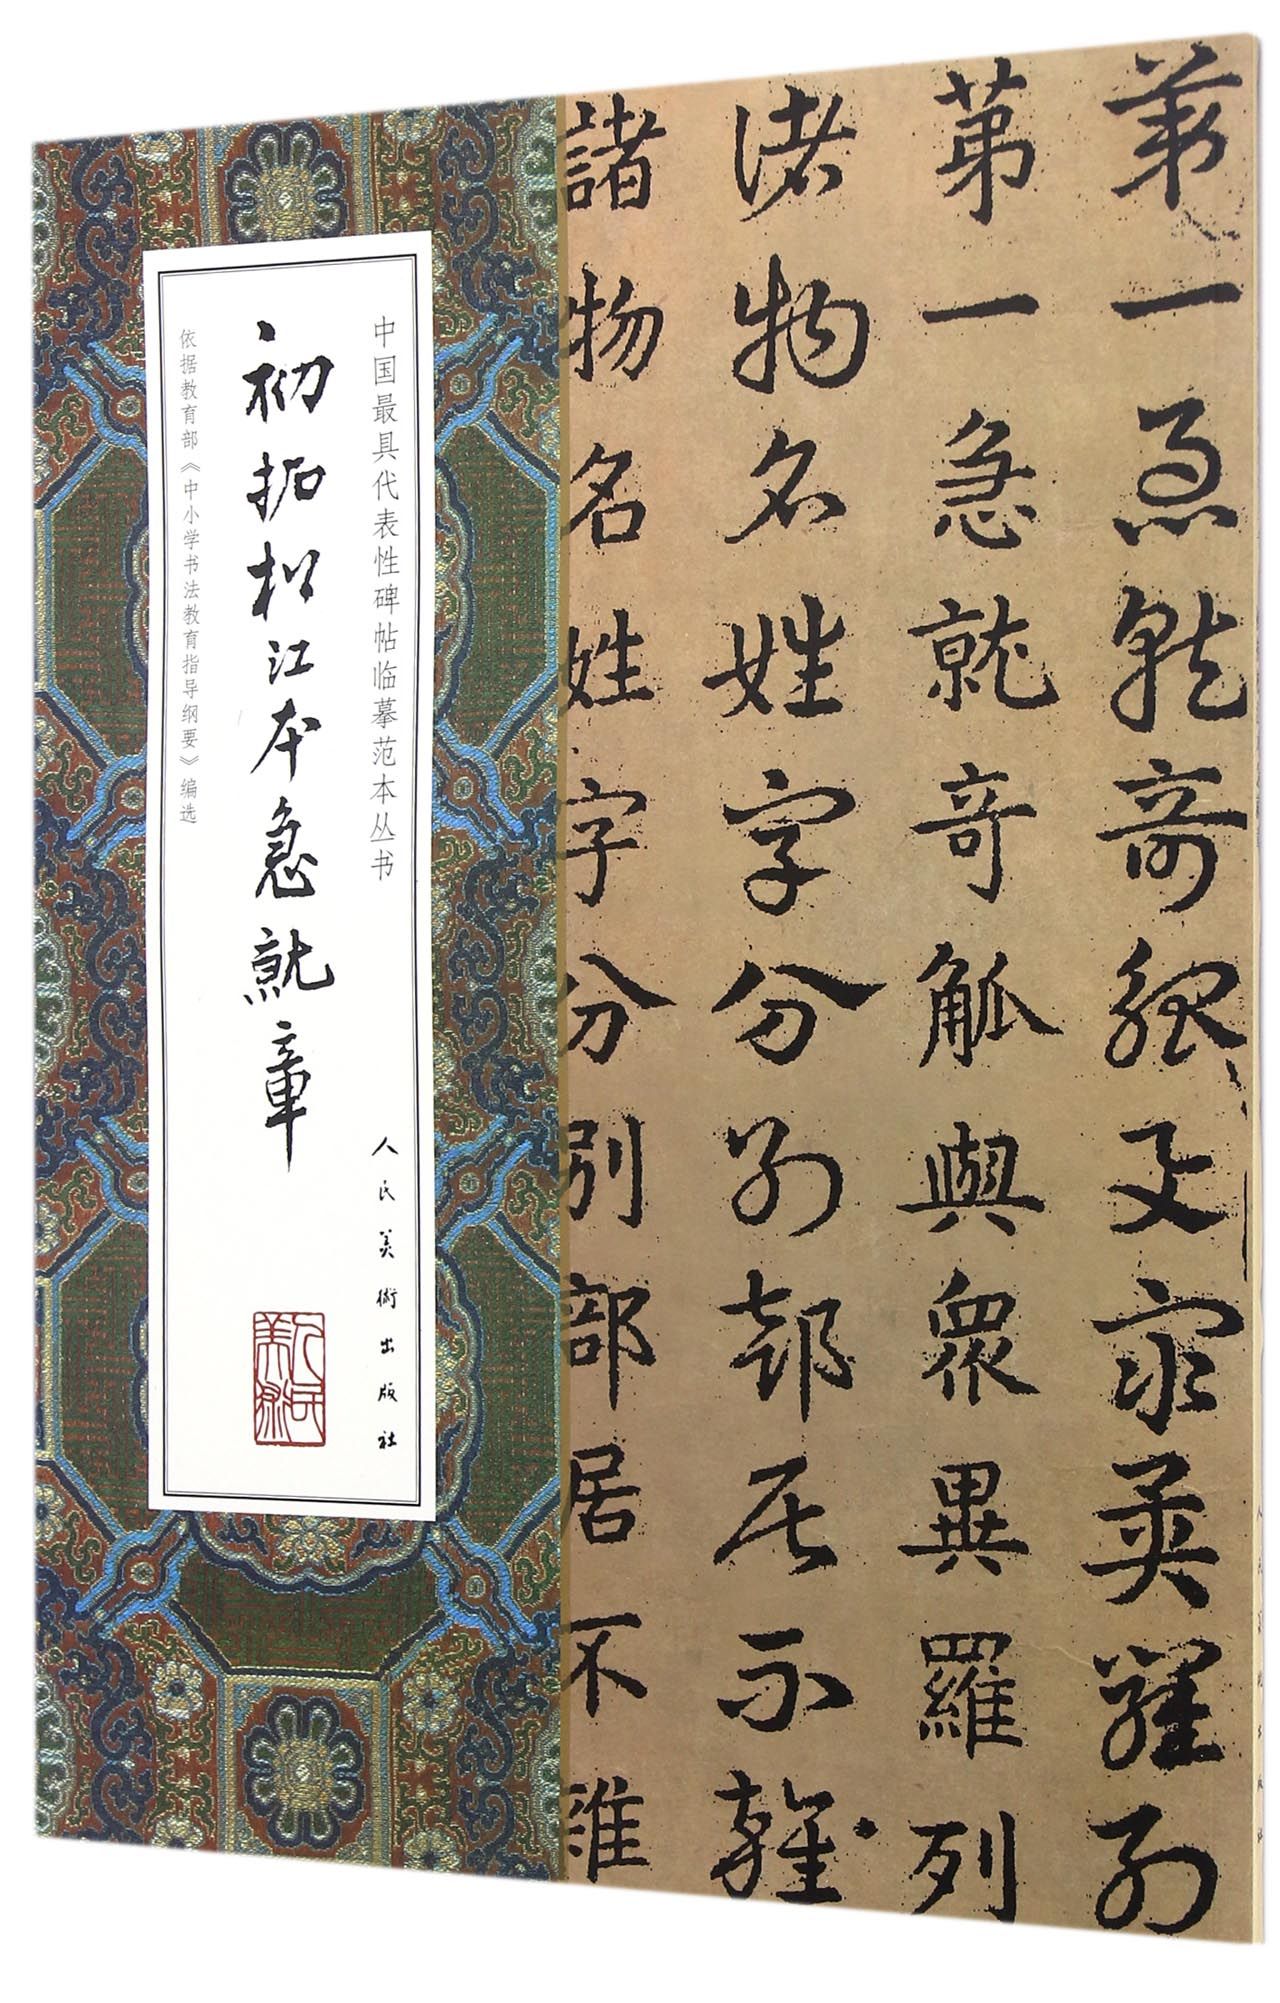 苐一急就奇觚与众異羅列
第一急就奇觚與衆異羅列
诸物名姓字分别部居不雜
諸物名姓字分别部居不雜
中国最具代表性碑帖临摹范本丛书
初拓松江本急就章
依据教育部《中小学书法教育指导纲要》编选
人民美術出版社
人民美術